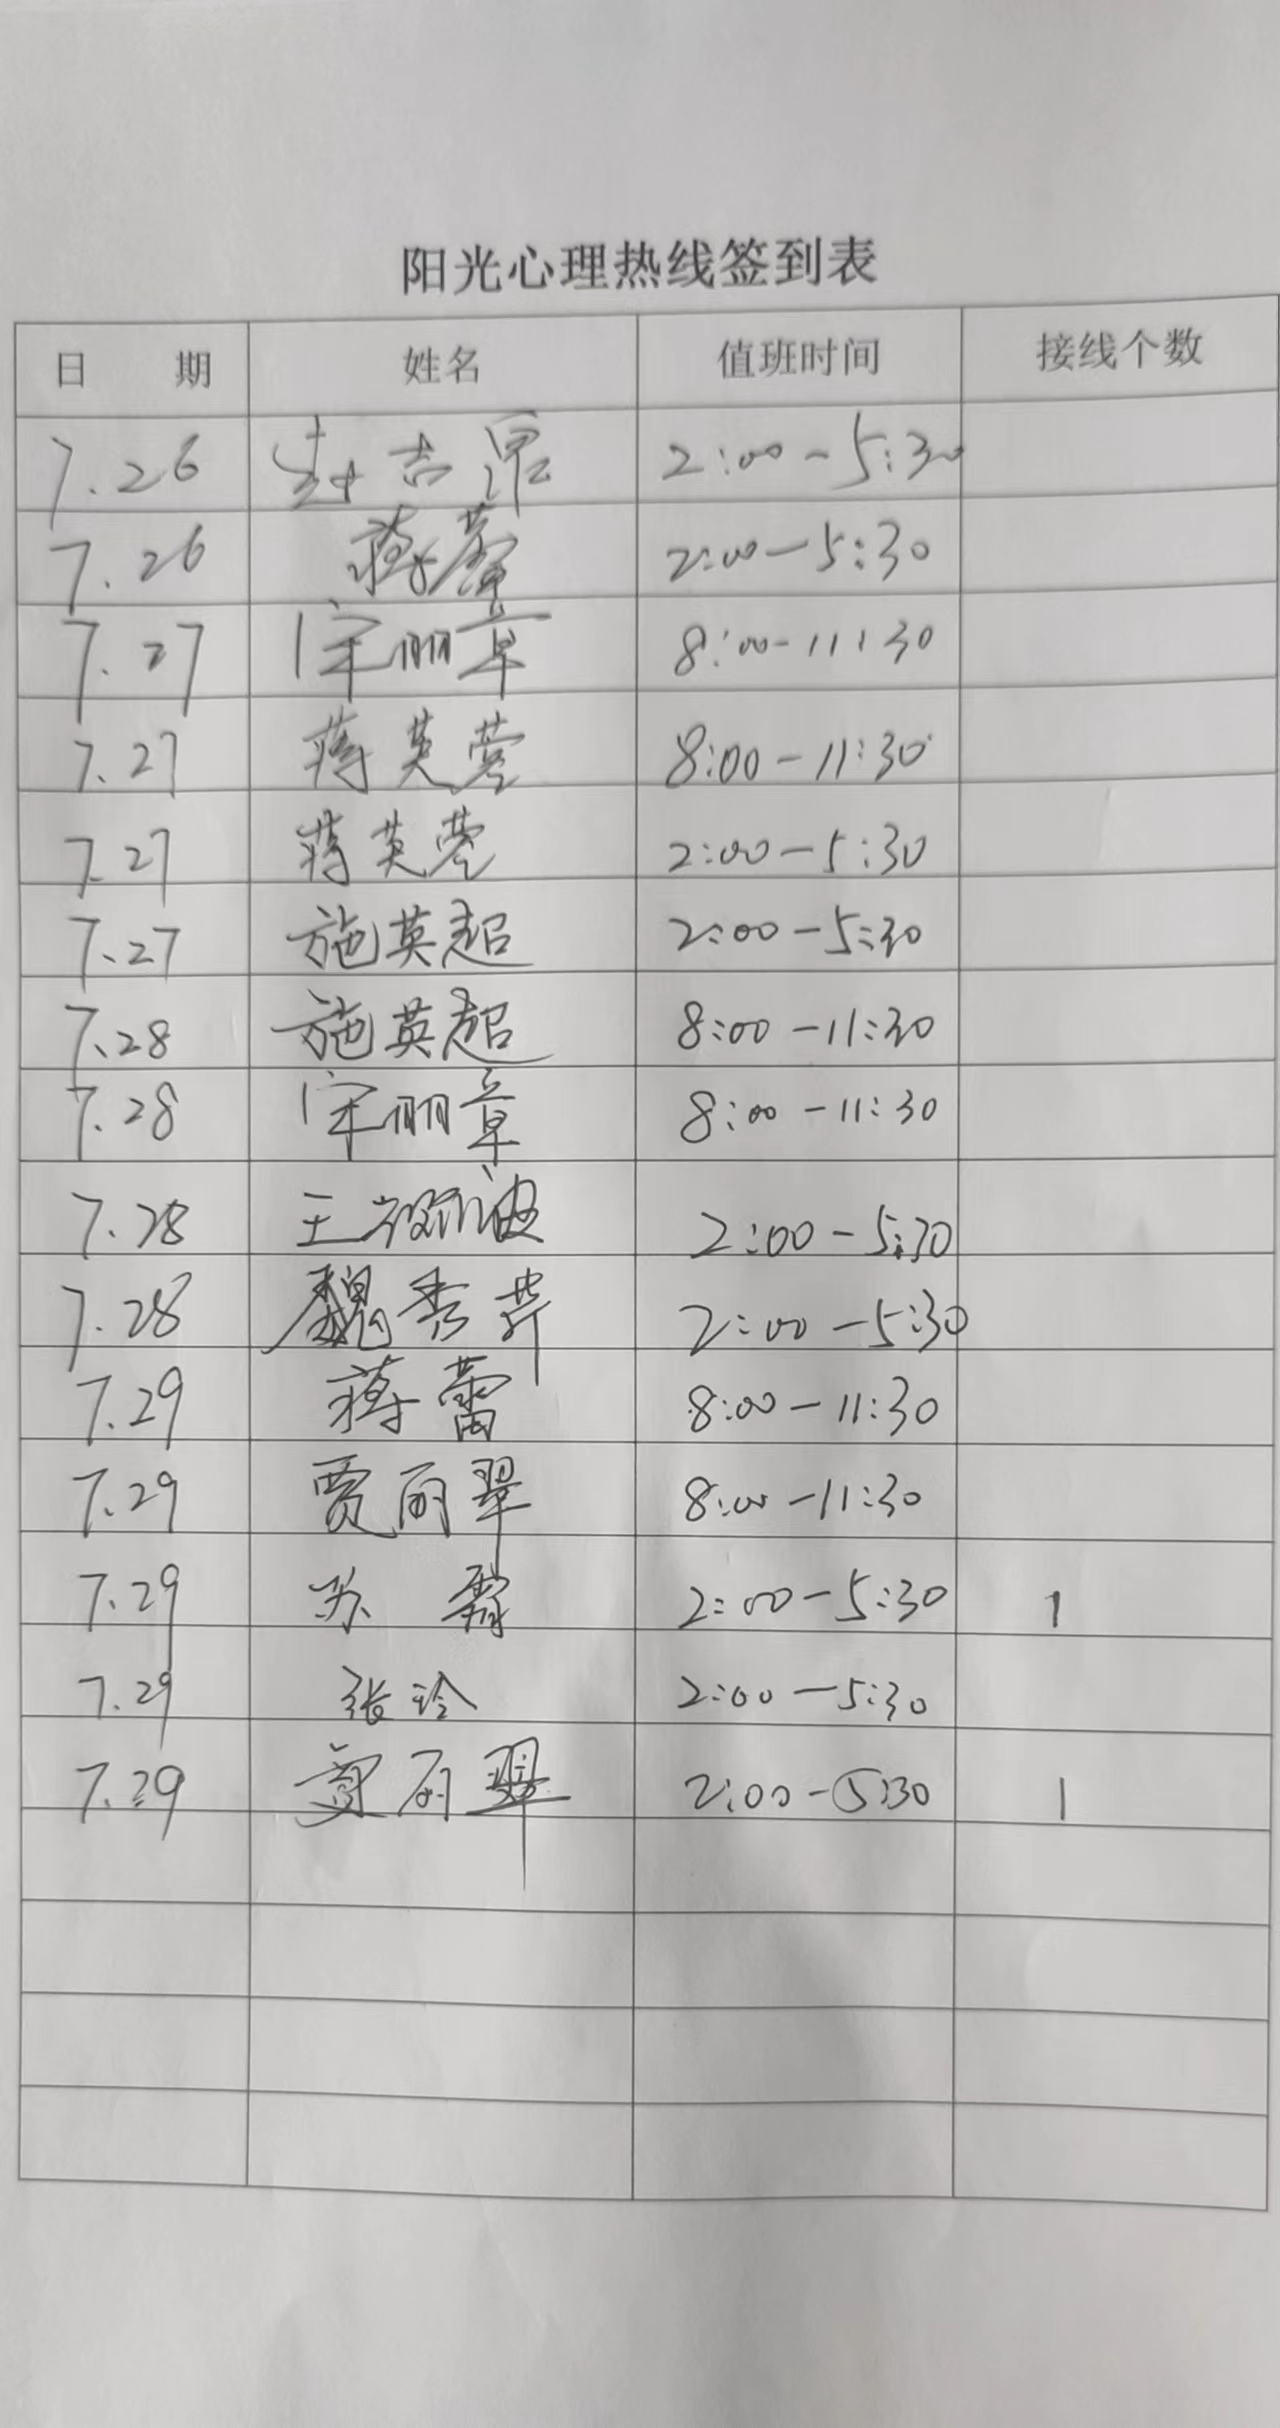 阳光心理热线签到表
日 期 姓名 值班时间 接线个数
7.26 2:00-5:30
7.26 蒋蕾 2:00-5:30
7.27 宋丽章 8:00-11:30
7.27 蒋芙蓉 8:00-11:30
7.27 蒋芙蓉 2:00-5:30
7.27 施英超 2:00-5:30
7.28 施英超 8:00-11:30
7.28 宋丽章 8:00-11:30
7.28 王 2:00-5:30
7.28 魏秀芹 2:00-5:30
7.29 蒋蕾 8:00-11:30
7.29 贾丽翠 8:00-11:30
7.29 苏霞 2:00-5:30 1
7.29 张玲 2:00-5:30
7.29 贾丽翠 2:00-5:30 1